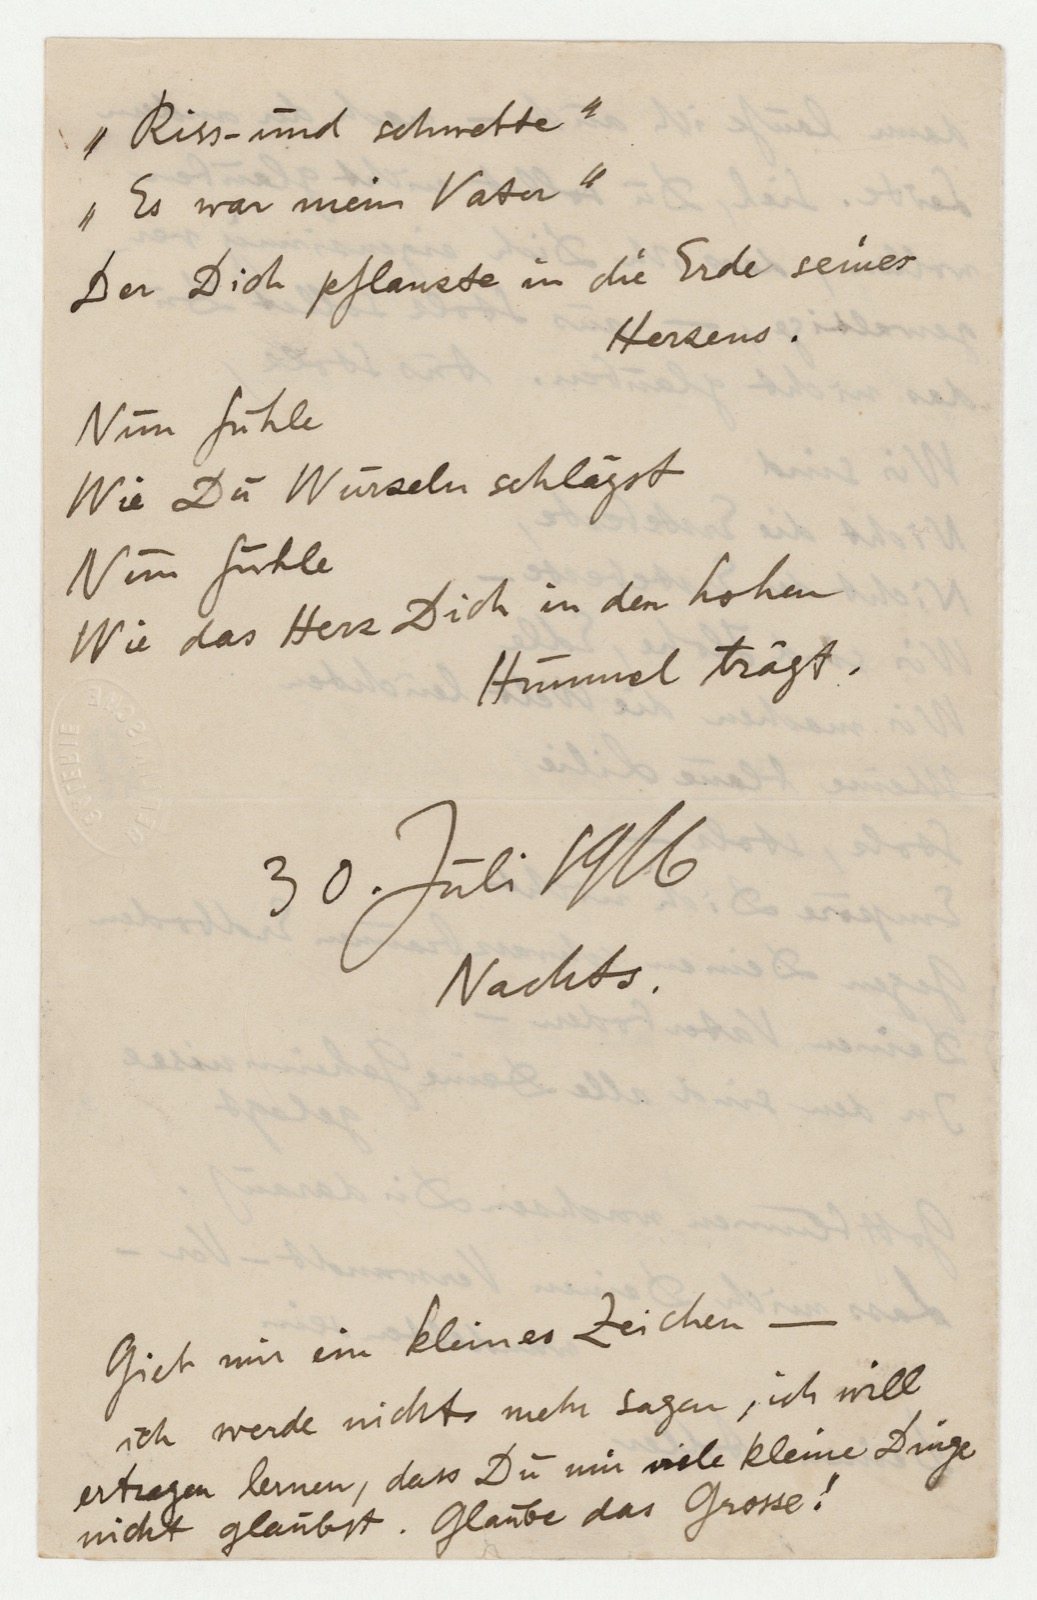 „Riss-und schwebte“
„Es war mein Vater“
Der Dich pflanzte in die Erde seines
Herzens.
Nun fühle
Wie Du Wurzeln schlägst
Nun fühle
Wie das Herz Dich in den hohen
Himmel trägt.
30. Juli 1916
Nachts.
Gieb mir ein kleines Zeichen —
ich werde nichts mehr sagen, ich will
ertragen lernen, dass Du mir viele kleine Dinge
nicht glaubst. Glaube das Grosse!